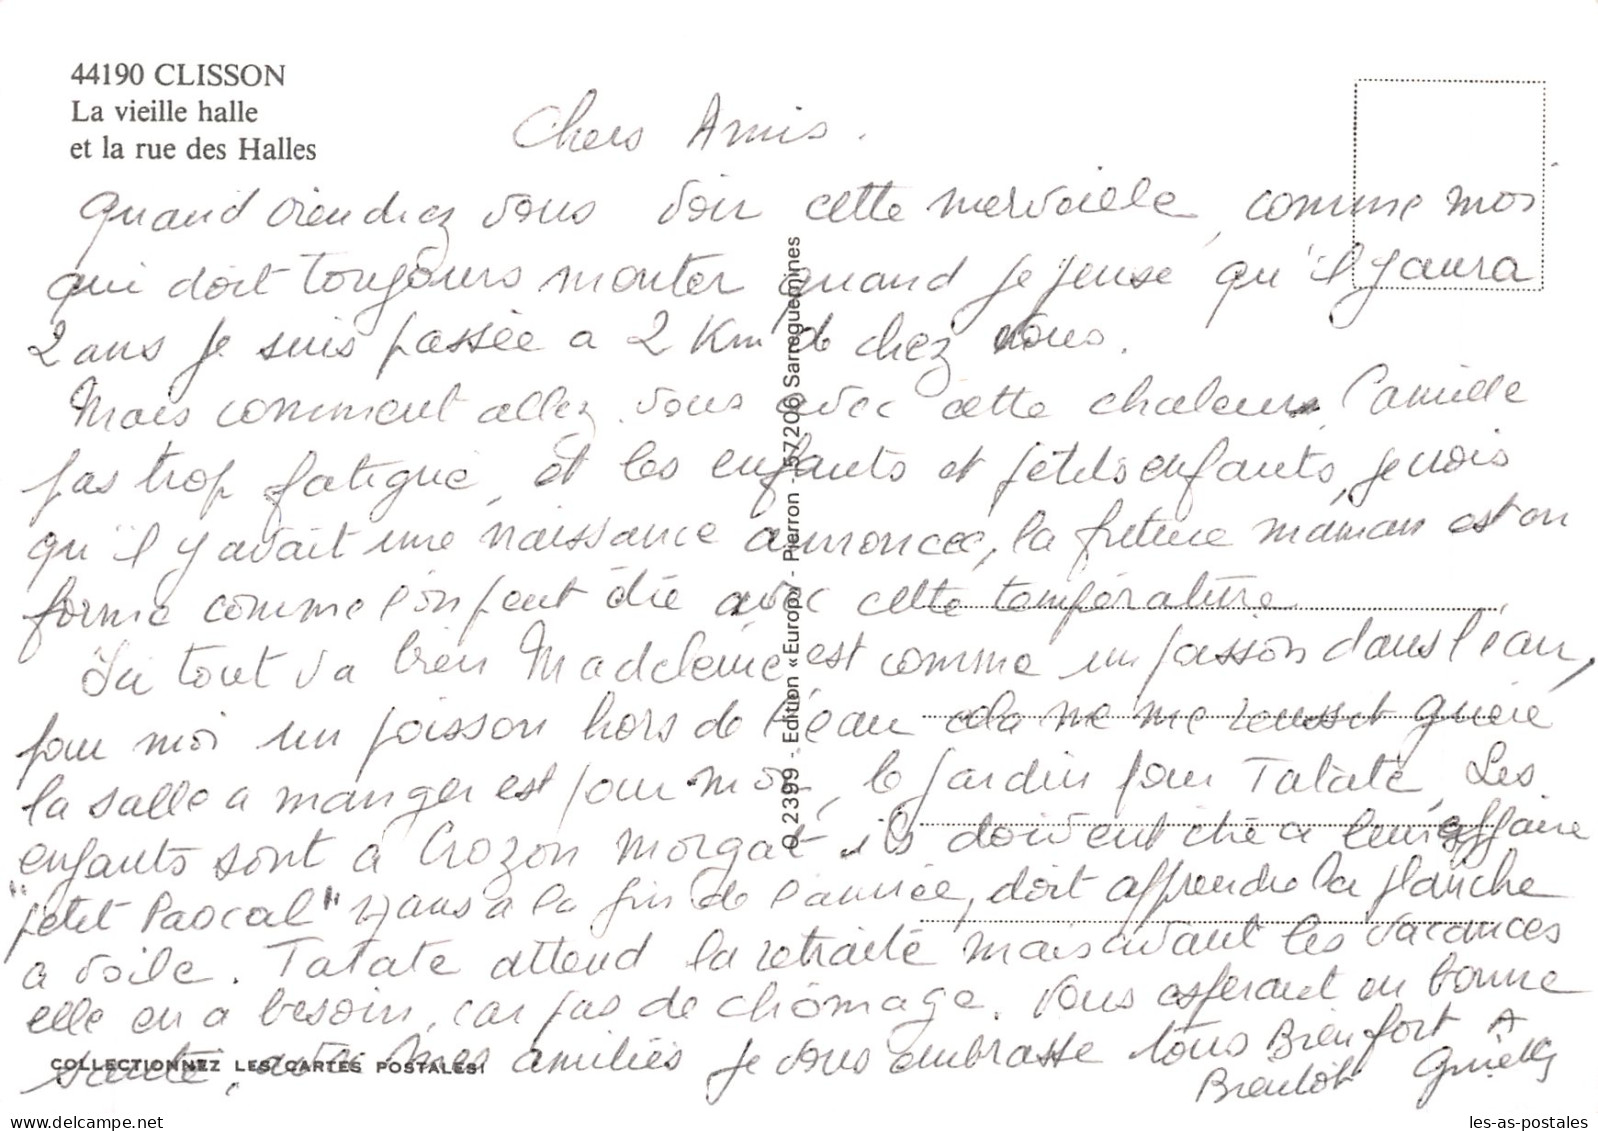 44190 CLISSON
La vieille halle
et la rue des Halles
Chers Amis.
Quand viendrez vous voir cette merveille, comme moi
qui doit toujours monter quand je pense qu'il y aura
2 ans je suis passée a 2 Km de chez vous.
Mais comment allez vous avec cette chaleur, Camille
pas trop fatigué, et les enfants et petits enfants, je vois
qu'il y avait une naissance annoncée, la future maman est en
forme comme l'on peut être avec cette température.
Ici tout va bien Madeleine est comme un poisson dans l'eau,
pour moi un poisson hors de l'eau cela ne me réussit guère
la salle a manger est pour moi, le jardin pour Tatate, Les
enfants sont à Crozon Morgat ils doivent être a leur affaire
"petit Pascal" 17 ans a la fin de l'année, doit apprendre la planche
a voile. Tatate attend la retraite mais avant les vacances
elle en a besoin, car pas de chômage. Vous espérant en bonne
santé, avec mes amitiés je vous embrasse tous Bien fort A
Bientôt
COLLECTIONNEZ LES CARTES POSTALES!
Q 2399 - Edition «Europ» - Pierron - 57206 Sarreguemines
les-as-postales